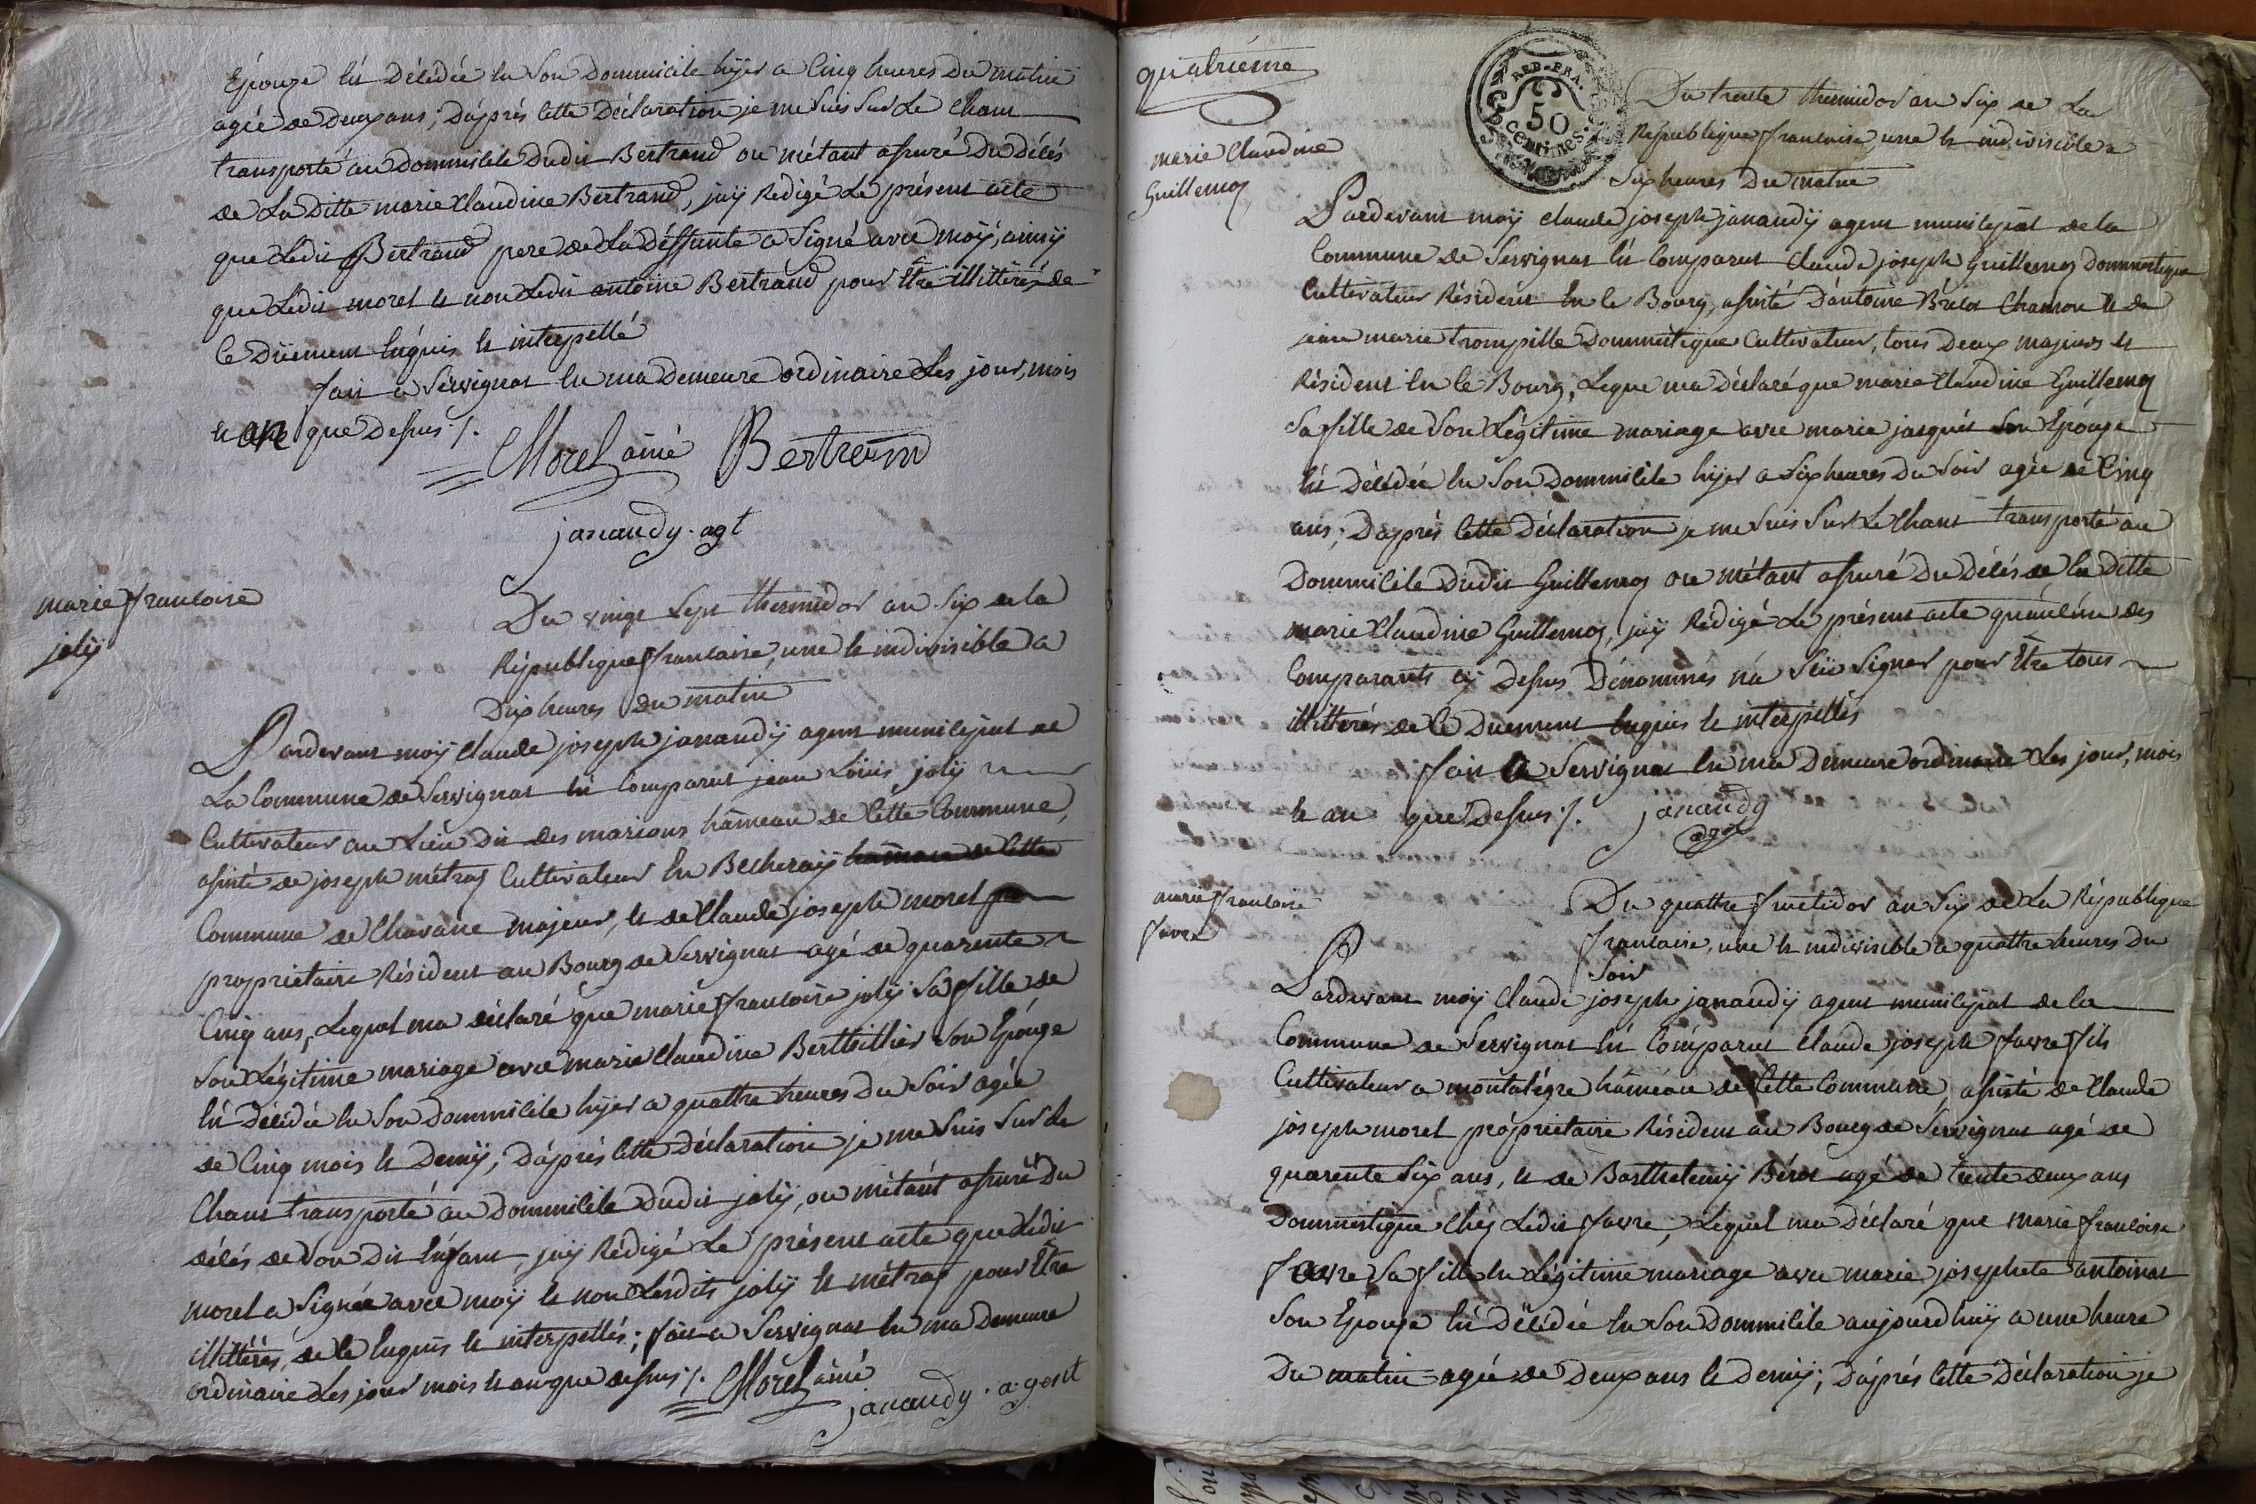 Epouze est Décédée en Son Dommicile hÿer a Cinq heures Du matin
agée de deux ans; D'après Cette Déclaration je me Suis Sur Le Cham
transporté au Dommicile Dudit Bertrand ou m'étant assuré Du Décés
de La Ditte marie Claudine Bertrand, jaÿ Rédigé Le présent acte
que Ledit Bertrand pere de La déffunte a Signé avec moÿ, ainsÿ
que Ledit morel et non Ledit antoine Bertrand pour Etre illittéré de
Ce Düement Enquis et interpellé
fait a Servignat En ma Demeure ordinaire Les jour, mois
et an que Dessus ./.
Morel ainé Bertrand
janaudy. agt
marie francoise
jolÿ
Du vingt Sept thermidor an Six de la
République francaise, une et indivisible a
Dix heures du matin
Pardevant moÿ Claude joseph janaudÿ agent municipal de
La Commune de Servignat Est Comparut jean Loüis jolÿ
Cultivateur au Lieu dit des marions hameau de Cette Commune,
assisté de joseph métras Cultivateur En Becheraÿ hameau de Cette
Commune de Chavane majeur, et de Claude joseph morel
proprietaire Résident au Bourg de Servignat agé de quarente
Cinq ans, Lequel ma déclaré que marie francoise jolÿ Sa fille de
Son Légitime mariage avec marie Claudine Berthillier Son Epouze
Est Décédée En Son Dommicile hÿer a quattre heures Du Soir agée
de Cinq mois et Demÿ; D'après Cette Déclaration je me Suis Sur Le
Cham transporté au Dommicile dudit jolÿ, ou m'étant assuré Du
décés de Son Dit Enfant, jaÿ Rédigé Le présent acte que Ledit
morel a Signé avec moÿ et non Lesdits jolÿ et métras pour Etre
illittérés, de Ce Enquis et interpellés; fait a Servignat En ma Demeure
ordinaire Les jour mois et an que dessus ./. Morel ainé
janaudy. agent
quatriéme
REP. FRA.
50
centimes.
marie Claudine
Guillemos
Du trente thermidor an Six de La
République francaise une et indivisible a
Six heures Du matin
Pardevant moÿ Claude joseph janaudÿ agent municipal de la
Commune de Servignat Est Comparut Claude joseph Guillemos Dommestique
Cultivateur Résident En le Bourg, assisté D'antoine Chanon et de
jean marie trompille Dommestique Cultivateur, tous Deux majeurs et
Résident En le Bourg, Leque ma Déclaré que marie Claudine Guillemos
Sa fille de Son Légitime mariage avec marie jasques Son Epouze
Est Décédée En Son Dommicile hÿer a Six heures Du Soir agée de Cinq
ans; D'après Cette Déclaration je me Suis Sur Le Cham transporté au
Dommicile Dudit Guillemos ou m'étant assuré Du Décés de la Ditte
marie Claudine Guillemos, jaÿ Rédigé Le présent acte qu'aucun des
Comparants cÿ Dessus Dénommés n'a Seü Signer pour Etre tous
illittérés de Ce Duement Enquis et interpellés
fait a Servignat En ma Demeure ordinaire Les jour, mois
et an que Dessus ./. janaudy
agt
marie francoise
favre
Du quattre fructidor an Six de La République
francaise, une et indivisible a quattre heures Du
Soir
Pardevant moÿ Claude joseph janaudÿ agent municipal de la
Commune de Servignat Est Comparut Claude joseph favre fils
Cultivateur a montalégre hameau de Cette Commune, assisté de Claude
joseph morel propriétaire Résident au Bourg de Servignat agé de
quarente Six ans, et de Barthelemÿ agé de trente deux ans
Dommestique Chéz Ledit favre, Lequel ma Déclaré que marie francoise
favre Sa fille En Légitime mariage avec marie josephete antoinat
Son Epouze Est Décédée En Son Dommicile aujourd huÿ a une heure
Du matin agée de Deux ans et demÿ; D'après Cette Déclaration je